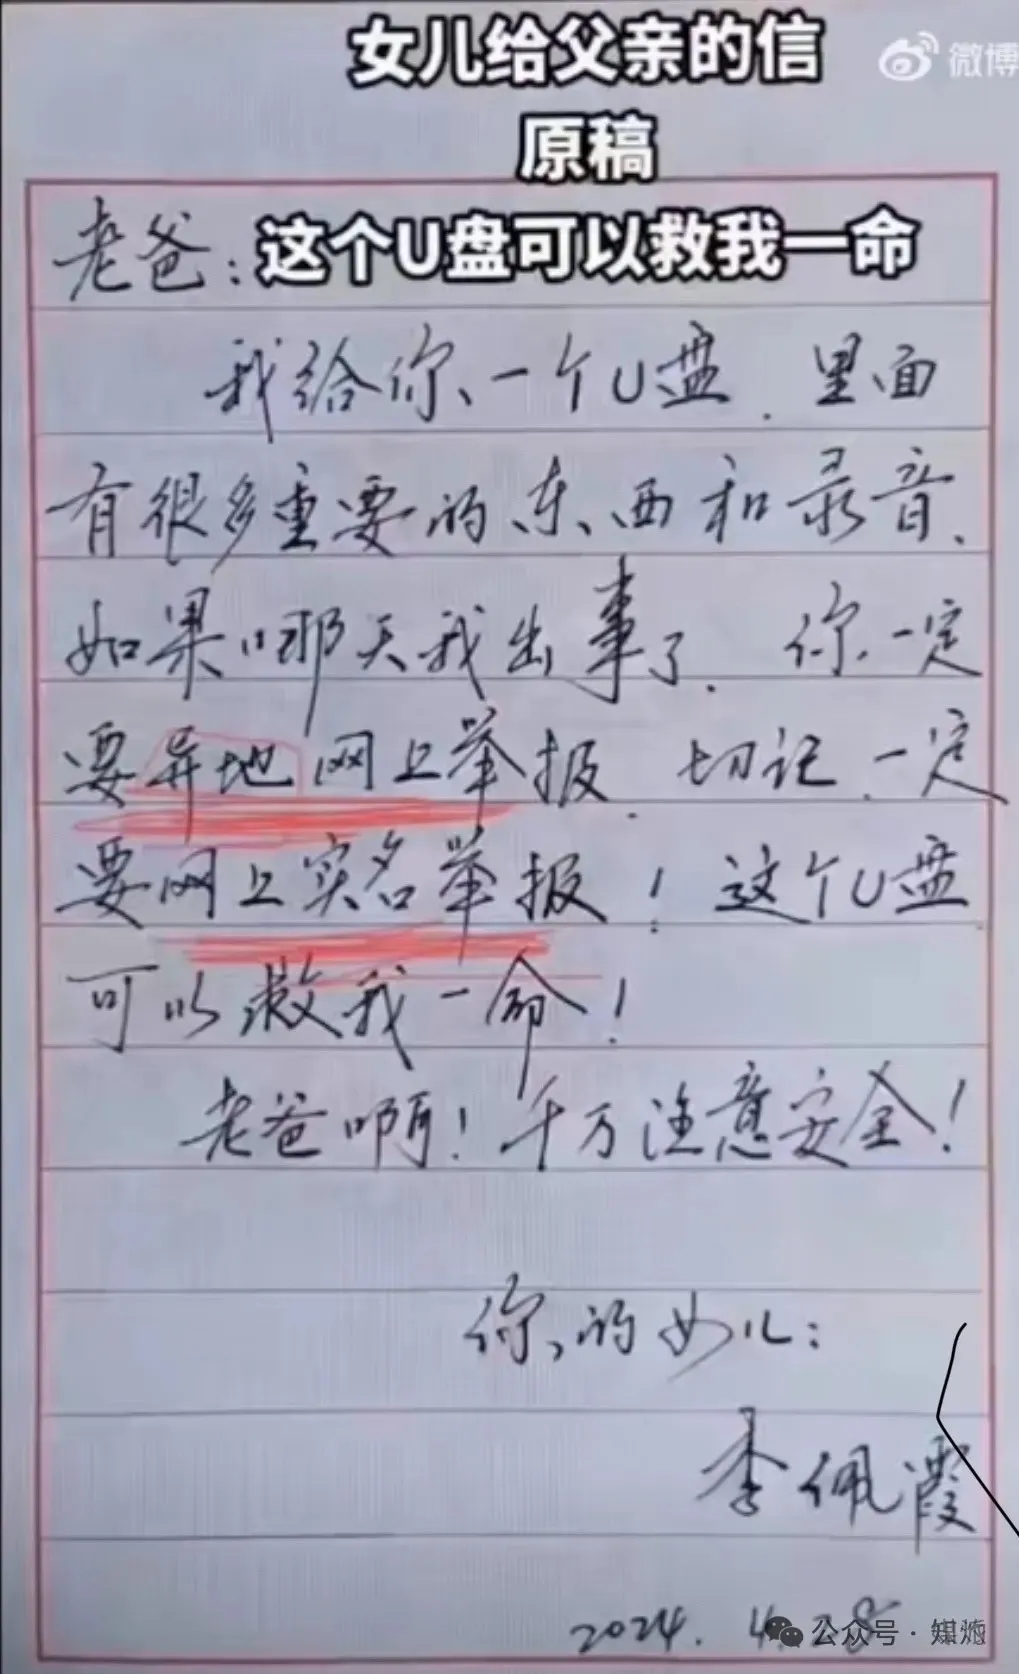 女儿给父亲的信
微博
原稿
老爸：
这个U盘可以救我一命
我给你一个U盘.里面
有很多重要的东西和录音、
如果哪天我出事了.你一定
要异地网上举报.切记.一定
要网上实名举报！这个U盘
可以救我一命！
老爸啊！千万注意安全！
你的女儿：
李佩霞
2024.4.28
公众号·媒炮